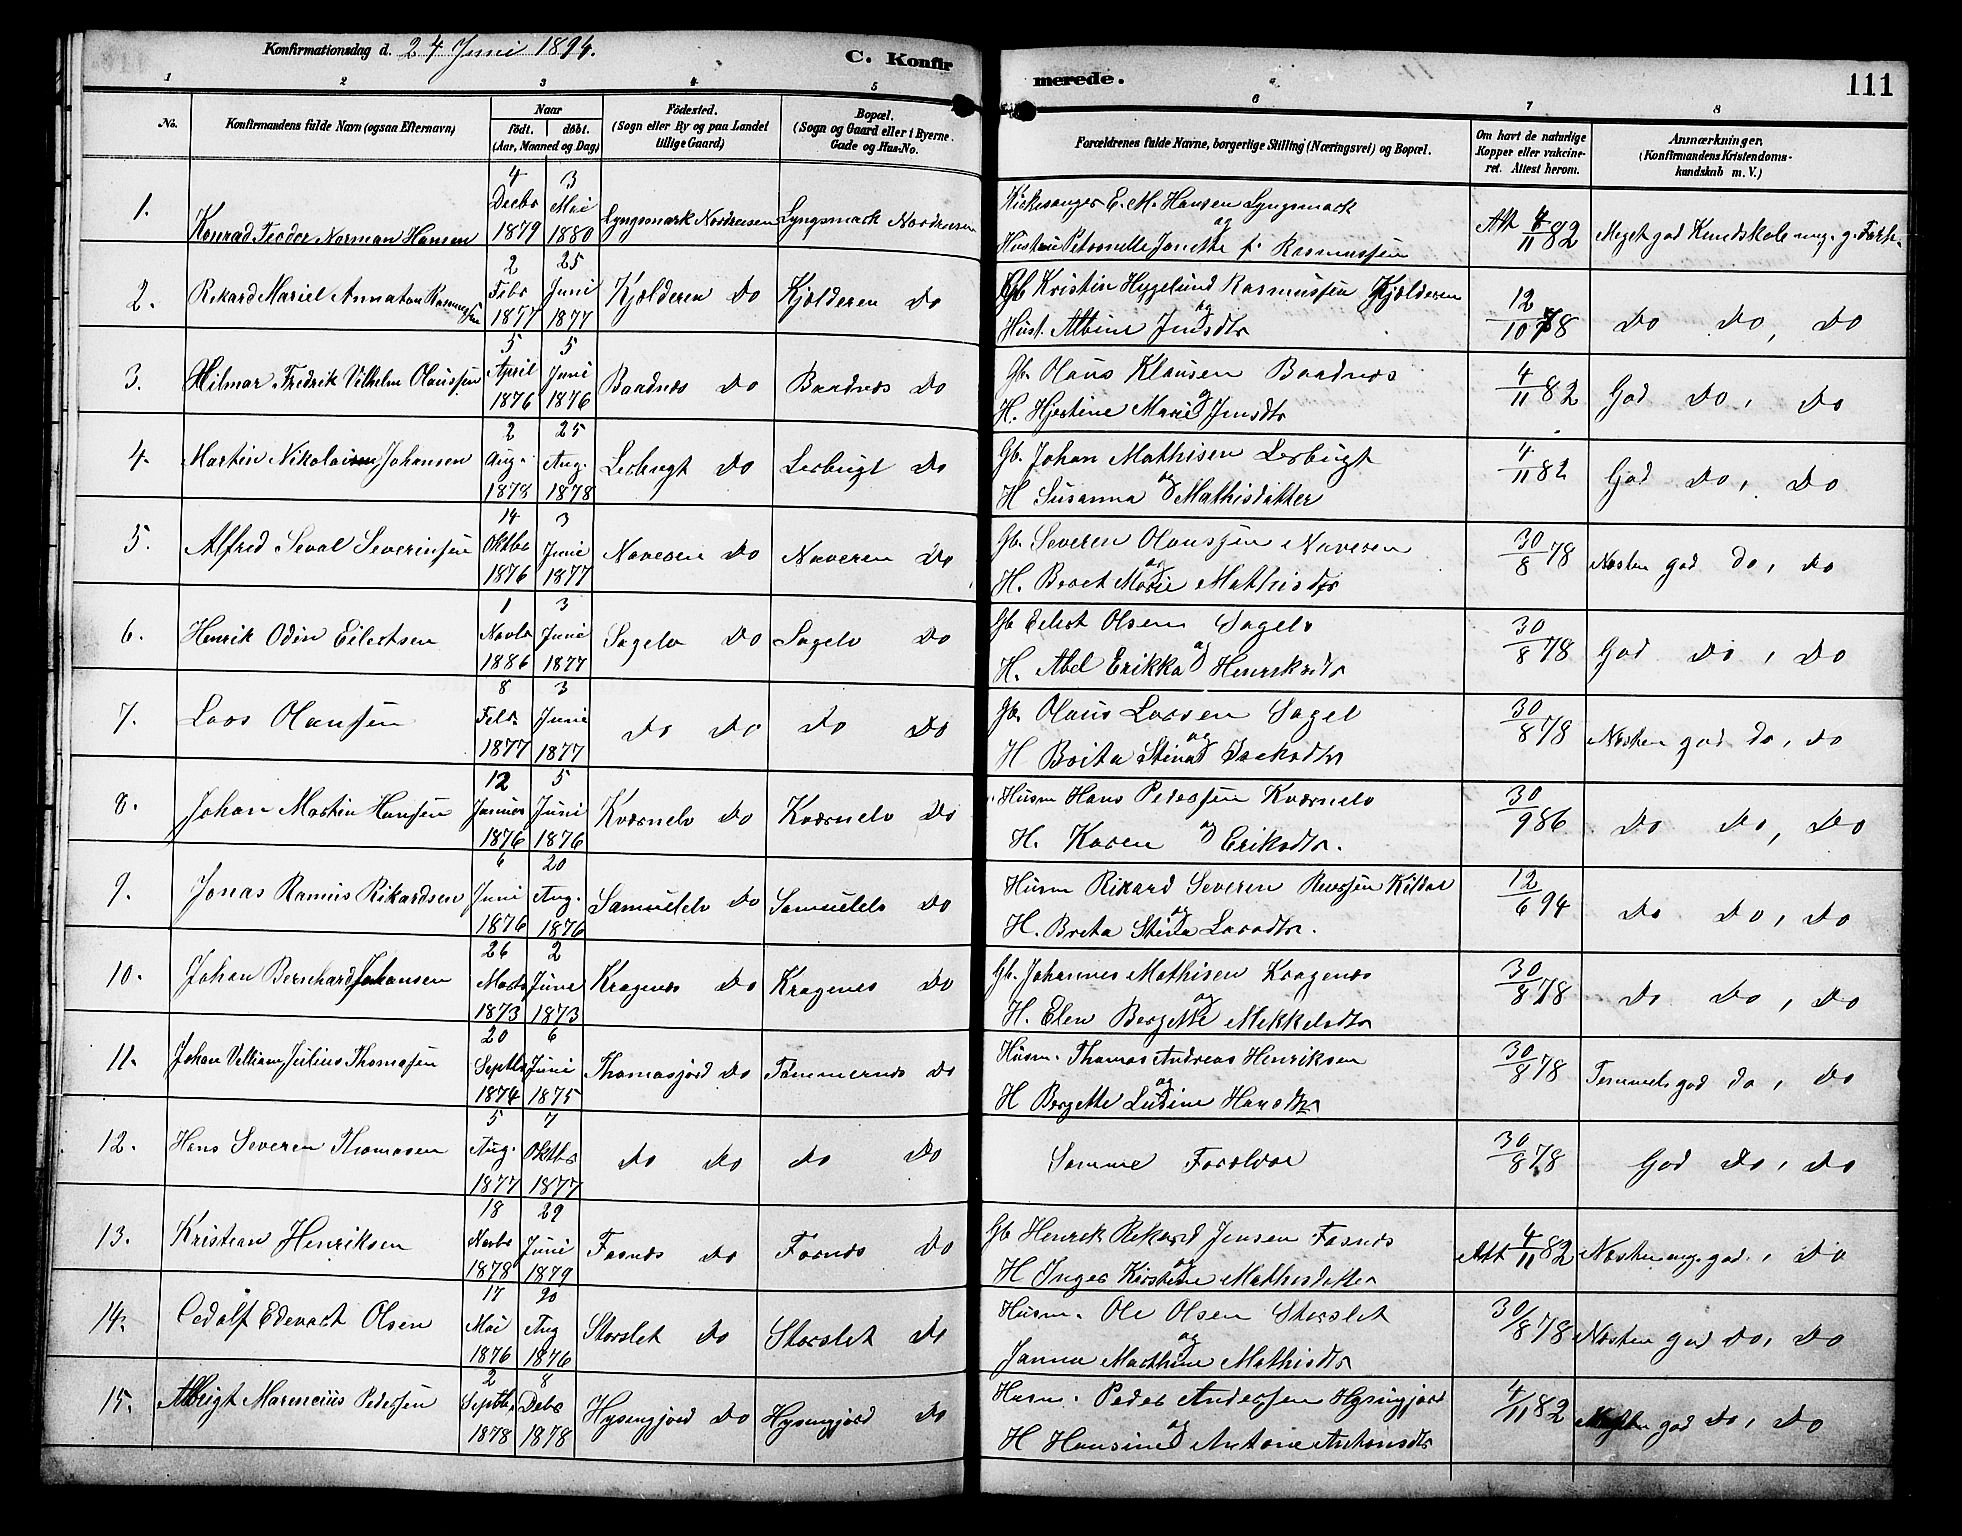 Konfirmationsdag d. 24 Juni 1894.
C. Konfirmerede.
111
1 2 3 4 5 6 7 8
No.
Konfirmandens fulde Navn (ogsaa Efternavn)
Naar
født. døbt.
(Aar, Maaned og Dag)
Fødested.
(Sogn eller By og paa Landet
tillige Gaard)
Bopæl.
(Sogn og Gaard eller i Byerne
Gade og Hus-No.
Forældrenes fulde Navne, borgerlige Stilling (Næringsvei) og Bopæl.
Om havt de naturlige
Kopper eller vakcine-
ret. Attest herom.
Anmærkninger.
(Konfirmandens Kristendoms-
kundskab m. V.)
1. Konrad Teodor Norman Hansen 4 Decbr 1879 3 Mai 1880 Lyngsmark Nordreisen Lyngsmark Nordreisen
Kirkesanger E. M. Hansen Lyngsmark og
Hustru Petronelle Janette f. Rasmussen
Att 4/11 82 Meget god Kundskab mg. g. Forh.
2. Rikard Mariel Annaton Rasmussen 2 Febr 1877 25 Juni 1877 Kjælderen Do Kjælderen Do
Gb Kristin Hygelund Rasmussen Kjælderen og
Hust. Albine Jensdtr
12/10 78 Do Do, Do
3. Hilmar Fredrik Vilhelm Olaussen 5 April 1876 5 Juni 1876 Baadnæs Do Baadnæs Do
Gb. Olaus Klausen Baadnæs og
H. Hjertine Marie Jensdtr
4/11 82 God Do, Do
4. Martin Nikolaisen Johansen 2 Aug. 1878 25 Aug. 1878 Lerbugt Do Lerbugt Do
Gb. Johan Mathisen Lerbugt og
H Susanna Mathisdatter
4/11 82 God Do, Do
5. Alfred Seval Severinsen 14 Oktbr 1876 3 Juni 1877 Naveren Do Naveren Do
Gb. Severen Olaussen Naveren og
H. Beret Marie Mathisdtr
30/8 78 Næsten god Do, Do
6. Henrik Odin Eilertsen 1 Novbr 1886 3 Juni 1877 Sagelv Do Sagelv Do
Gb Eilert Olsen Sagelv og
H. Abel Erikka Henriksdtr
30/8 78 God Do, Do
7. Lars Olaussen 8 Febr 1877 3 Juni 1877 Do Do Do Do
Gb. Olaus Larsen Sagel og
H Brita Stina Isaksdtr
30/8 78 Næsten god Do, Do
8. Johan Martin Hansen 12 Januar 1876 5 Juni 1876 Kværnelv Do Kværnelv Do
Husm Hans Pedersen Kværnelv og
H. Karen Eriksdtr.
30/9 86 Do Do, Do
9. Jonas Ramus Rikardsen 6 Juni 1876 20 Aug. 1876 Samuelelv Do Samuelelv Do
Husm Rikard Severen Kildal og
H. Brita Stina Larsdtr.
12/6 94 Do Do, Do
10. Johan Bernhard Johansen 26 Marts 1873 2 Juni 1873 Kragenæs Do Kragenes Do
Gb. Johannes Mathisen Kragenæs og
H. Elen Bergette Mikkelsdtr
30/8 78 Do Do, Do
11. Johan Villiam Julius Thomasen 20 Septbr 1874 6 Juni 1875 Thomasjord Do Tømmernes Do
Husm. Thomas Andreas Henriksen og
H Bergette Lusine Hansdtr
30/8 78 Temmeli god Do, Do
12. Hans Severen Thomasen 5 Aug. 1877 7 Oktbr 1877 Do Do Do Do
Samme Forældre
30/8 78 God Do, Do
13. Kristian Henriksen 18 Novbr 1878 29 Juni 1879 Fosnæs Do Fosnæs Do
Gb Henrik Rikard Jensen Fosnæs og
H Inger Kirstine Mathisdatter
Att 4/11 82 Næsten mg. god, Do
14. Edevart Olsen 17 Mai 1876 20 Aug 1876 Storslet Do Storslet Do
Husm. Ole Olsen Storslet og
Janna Marthine Mathisdtr
30/8 78 Næsten god Do, Do
15. Albrigt Pedersen 2 Septbr 1878 8 Debr 1878 Hysingjord Do Hysingjord Do
Husm. Peder Andersen Hysingjord og
H Hansine Antone Antonsdtr
4/11 82 Næsten god Do, Do